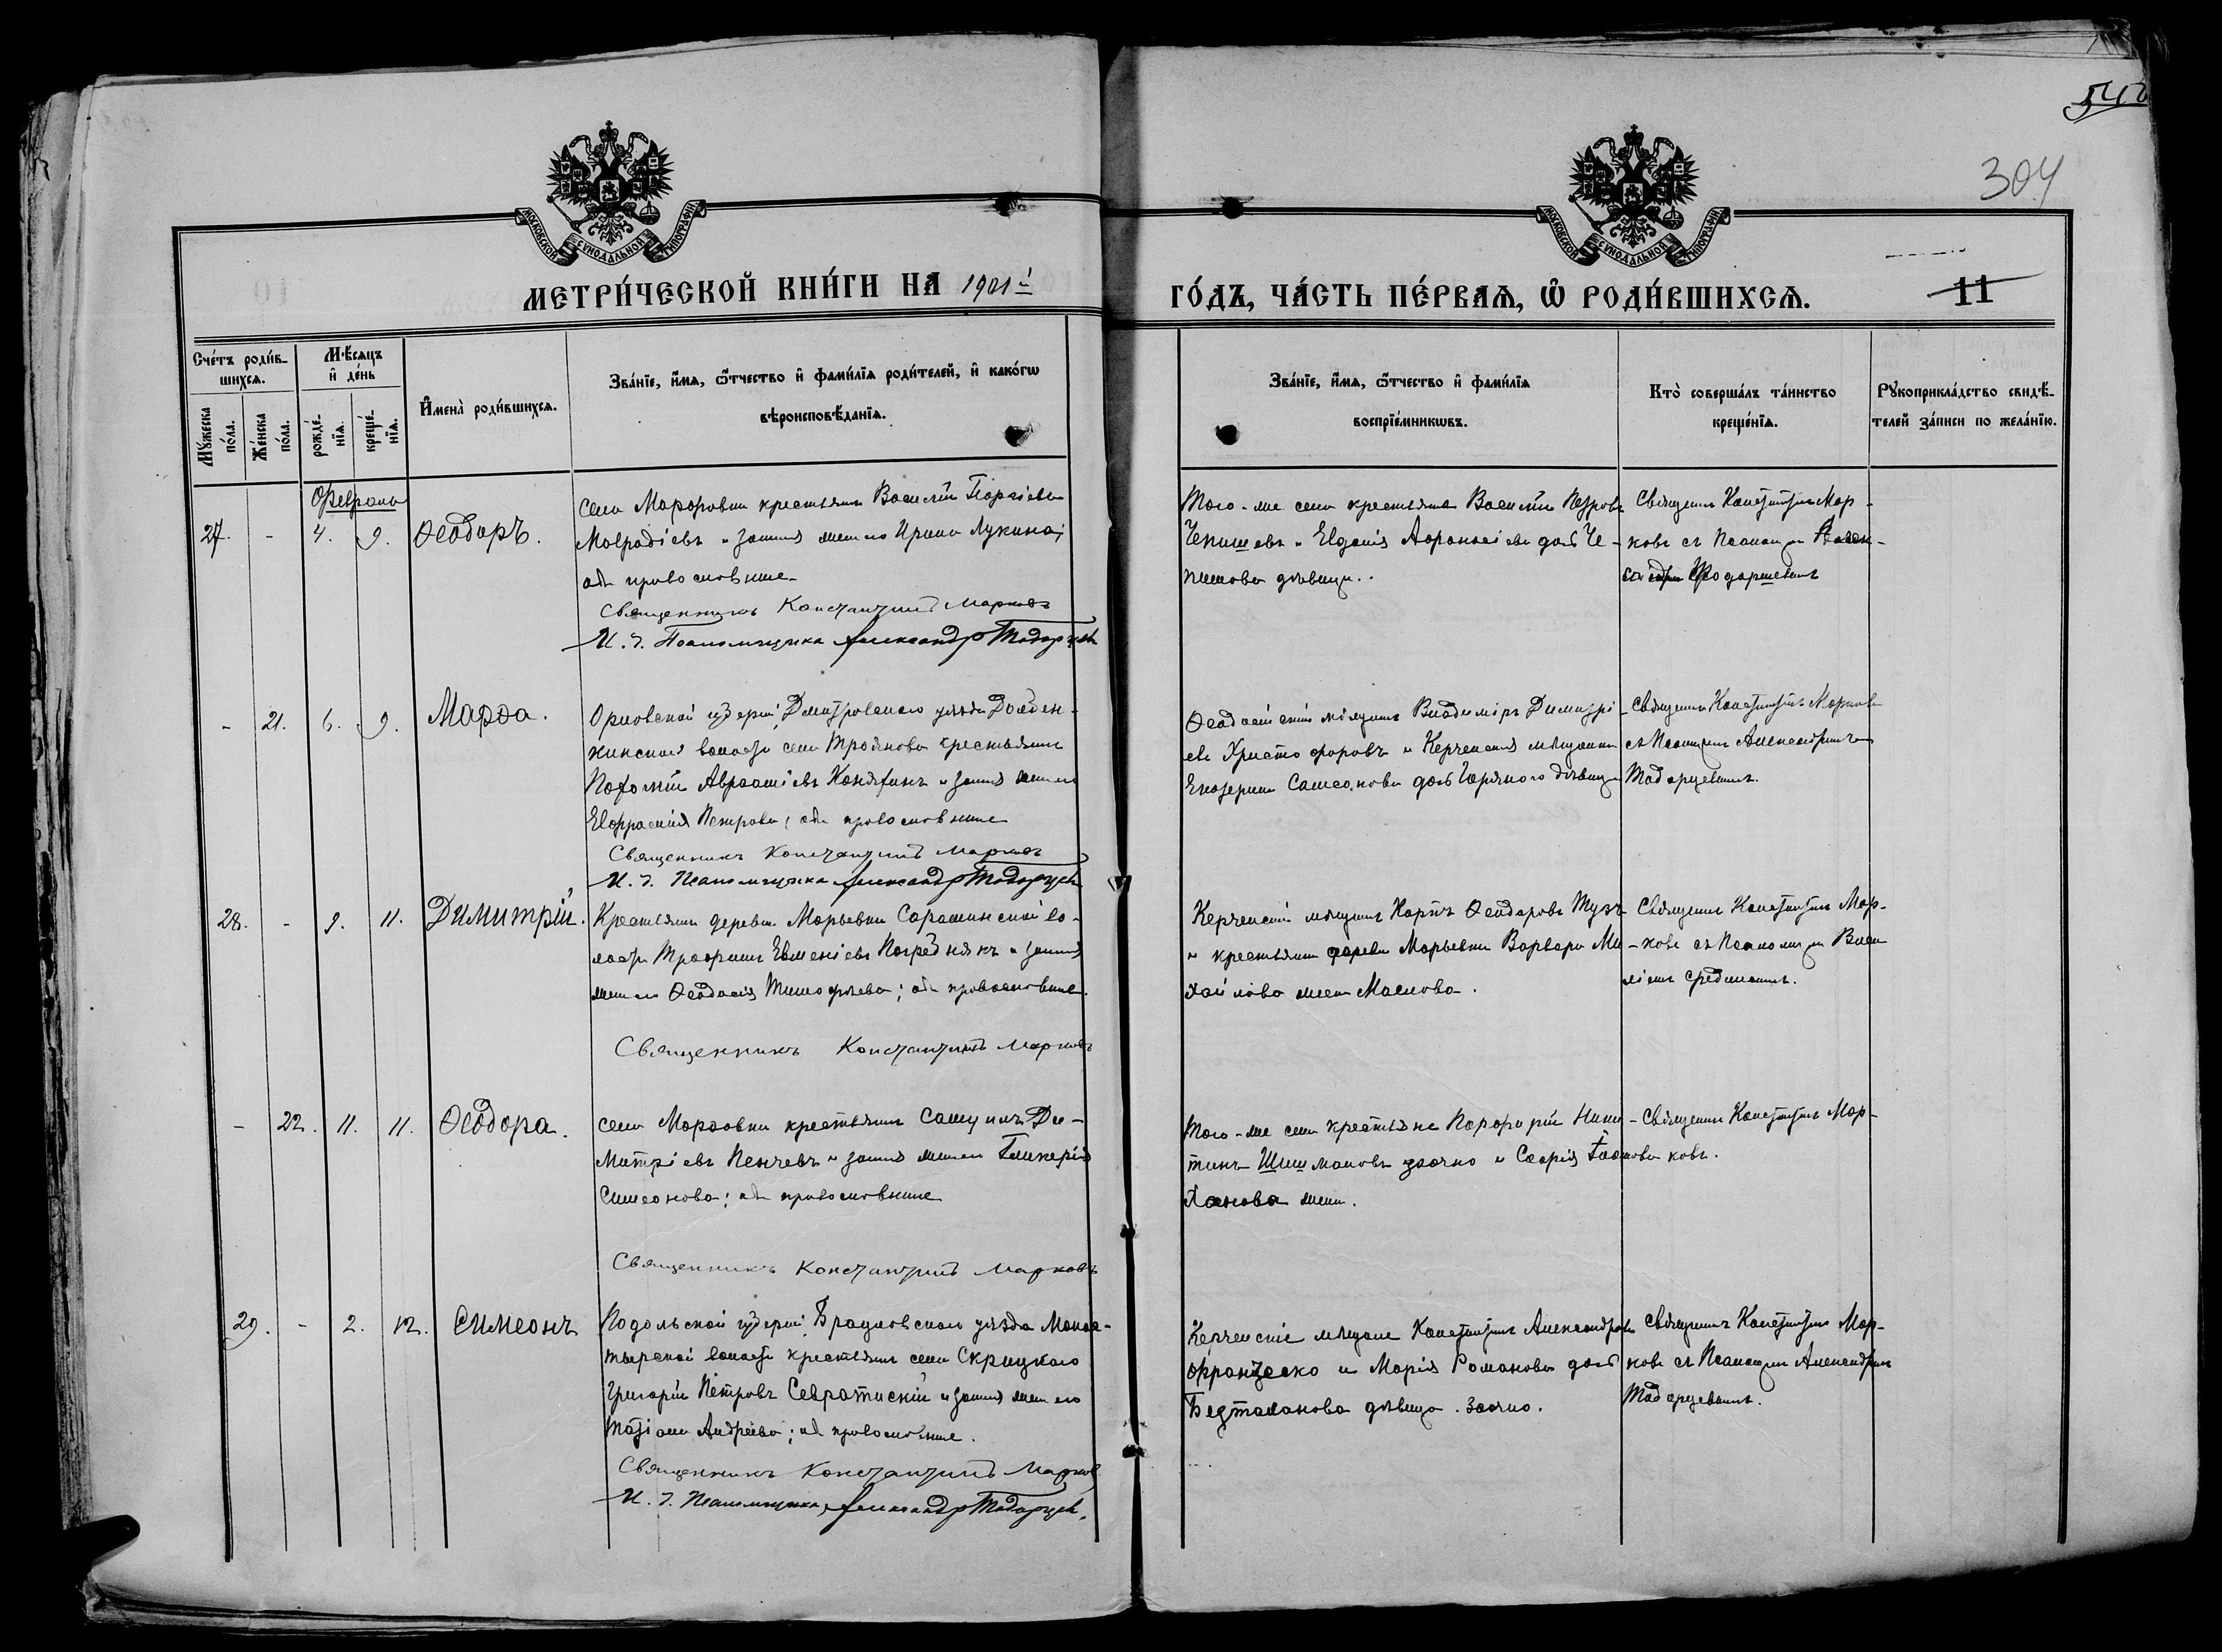 540
304
МОСКОВСКОЙ СУНОДАЛЬНОЙ ТИПОГРАФІИ
МОСКОВСКОЙ СУНОДАЛЬНОЙ ТИПОГРАФІИ
МЕТРИ́ЧЕСКОЙ КНИ́ГИ НА 1901й
ГО́ДЪ, ЧА́СТЬ ПЕ́РВАѦ, Ѿ РОДИ́ВШИХСѦ.
11
Сче́тъ роди́в-
шихсѧ.
Мѣ́сѧцъ
и҆ де́нь
Му́жеска
по́ла.
Же́нска
по́ла.
рожде́-
нїѧ.
креще́-
нїѧ.
И҆мена̀ роди́вшихсѧ.
Зва́нїе, и҆́мѧ, ѻ҆́тчество и҆ фами́лїѧ роди́телей, и҆ како́гѡ
вѣроисповѣ́данїѧ.
Зва́нїе, и҆́мѧ, ѻ҆́тчество и҆ фами́лїѧ
воспрїе́мникѡвъ.
Кто̀ соверша́лъ та́инство
креще́нїѧ.
Рꙋкоприкла́дство свидѣ́-
телей за́писи по жела́нїю.
Февраль
27. - 4. 9. Ѳеодоръ.
села Марфовки крестьянинъ Василій Георгіевъ
и законная жена его Ирина Лукина;
оба православные
Священникъ Константинъ Марковъ
И. д. Псаломщика Александр Тодорцев
Того-же села крестьяне Василій Петровъ
Чепишевъ и Евдокія Аѳонасіева дочь Че-
пишова дѣвица.
Священникъ Константинъ Мар-
ковъ съ Псаломщ.
- 21. 6. 9. Марѳа.
Орловской губерніи, Дмитровскаго уѣзда Долбен-
кинской волости села Трояново крестьянинъ
Пахомій Авраміевъ Конятинъ и закон. жена его
Евфрасинія Петрова; оба православные
Священникъ Константинъ Марковъ
И. д. Псаломщика Александр Тодорцев
Ѳеодосійскій мѣщанинъ Владиміръ Димитрі-
евъ Христофоровъ и Керченская мѣщанка
Екатерина Самсонова дочь Горячого дѣвица
Священникъ Константинъ Марковъ
съ Псаломщикомъ Александромъ
Тодорцевымъ.
28. - 9. 11. Димитрій.
Крестьянинъ деревни Марьевки Сарайминской во-
лости Трофимъ Евменіевъ Погреднякъ и законная
жена его Ѳеодосія Тимофѣева; оба православные.
Священникъ Константинъ Марковъ
Керченскій мѣщанинъ Карпъ Ѳеодоровъ
и крестьянка деревни Марьевки Варвара Ми-
хайлова жена Маслова.
Священникъ Константинъ Мар-
ковъ съ Псаломщ. Васи
ліемъ Срединскимъ.
- 22. 11. 11. Ѳеодора.
села Марфовки крестьянинъ Самуилъ Ди-
митріевъ Пенчевъ и законная жена его Гликерія
Симеонова; оба православные
Священникъ Константинъ Марковъ
Того-же села крестьяне Порфирій Ники-
тинъ Шишмановъ заочно и Софія
Ханова жена.
Священникъ Константинъ Мар-
ковъ.
29. - 2. 12. Симеонъ
Подольской губерніи, Брацлавскаго уѣзда Монас-
тырской волости крестьянинъ села Скрицкаго
Григорій Петровъ Севратискій и законная жена его
Татіана Андреева; оба православные.
Священникъ Константинъ Марков
И. д. Псаломщика Александр Тодорцев.
Керченскіе мѣщане Константинъ Александровъ
Франческо и Марія Романова дочь
Безталанова дѣвица. заочно.
Священникъ Константинъ Мар-
ковъ съ Псаломщик Александромъ
Тодорцевымъ.